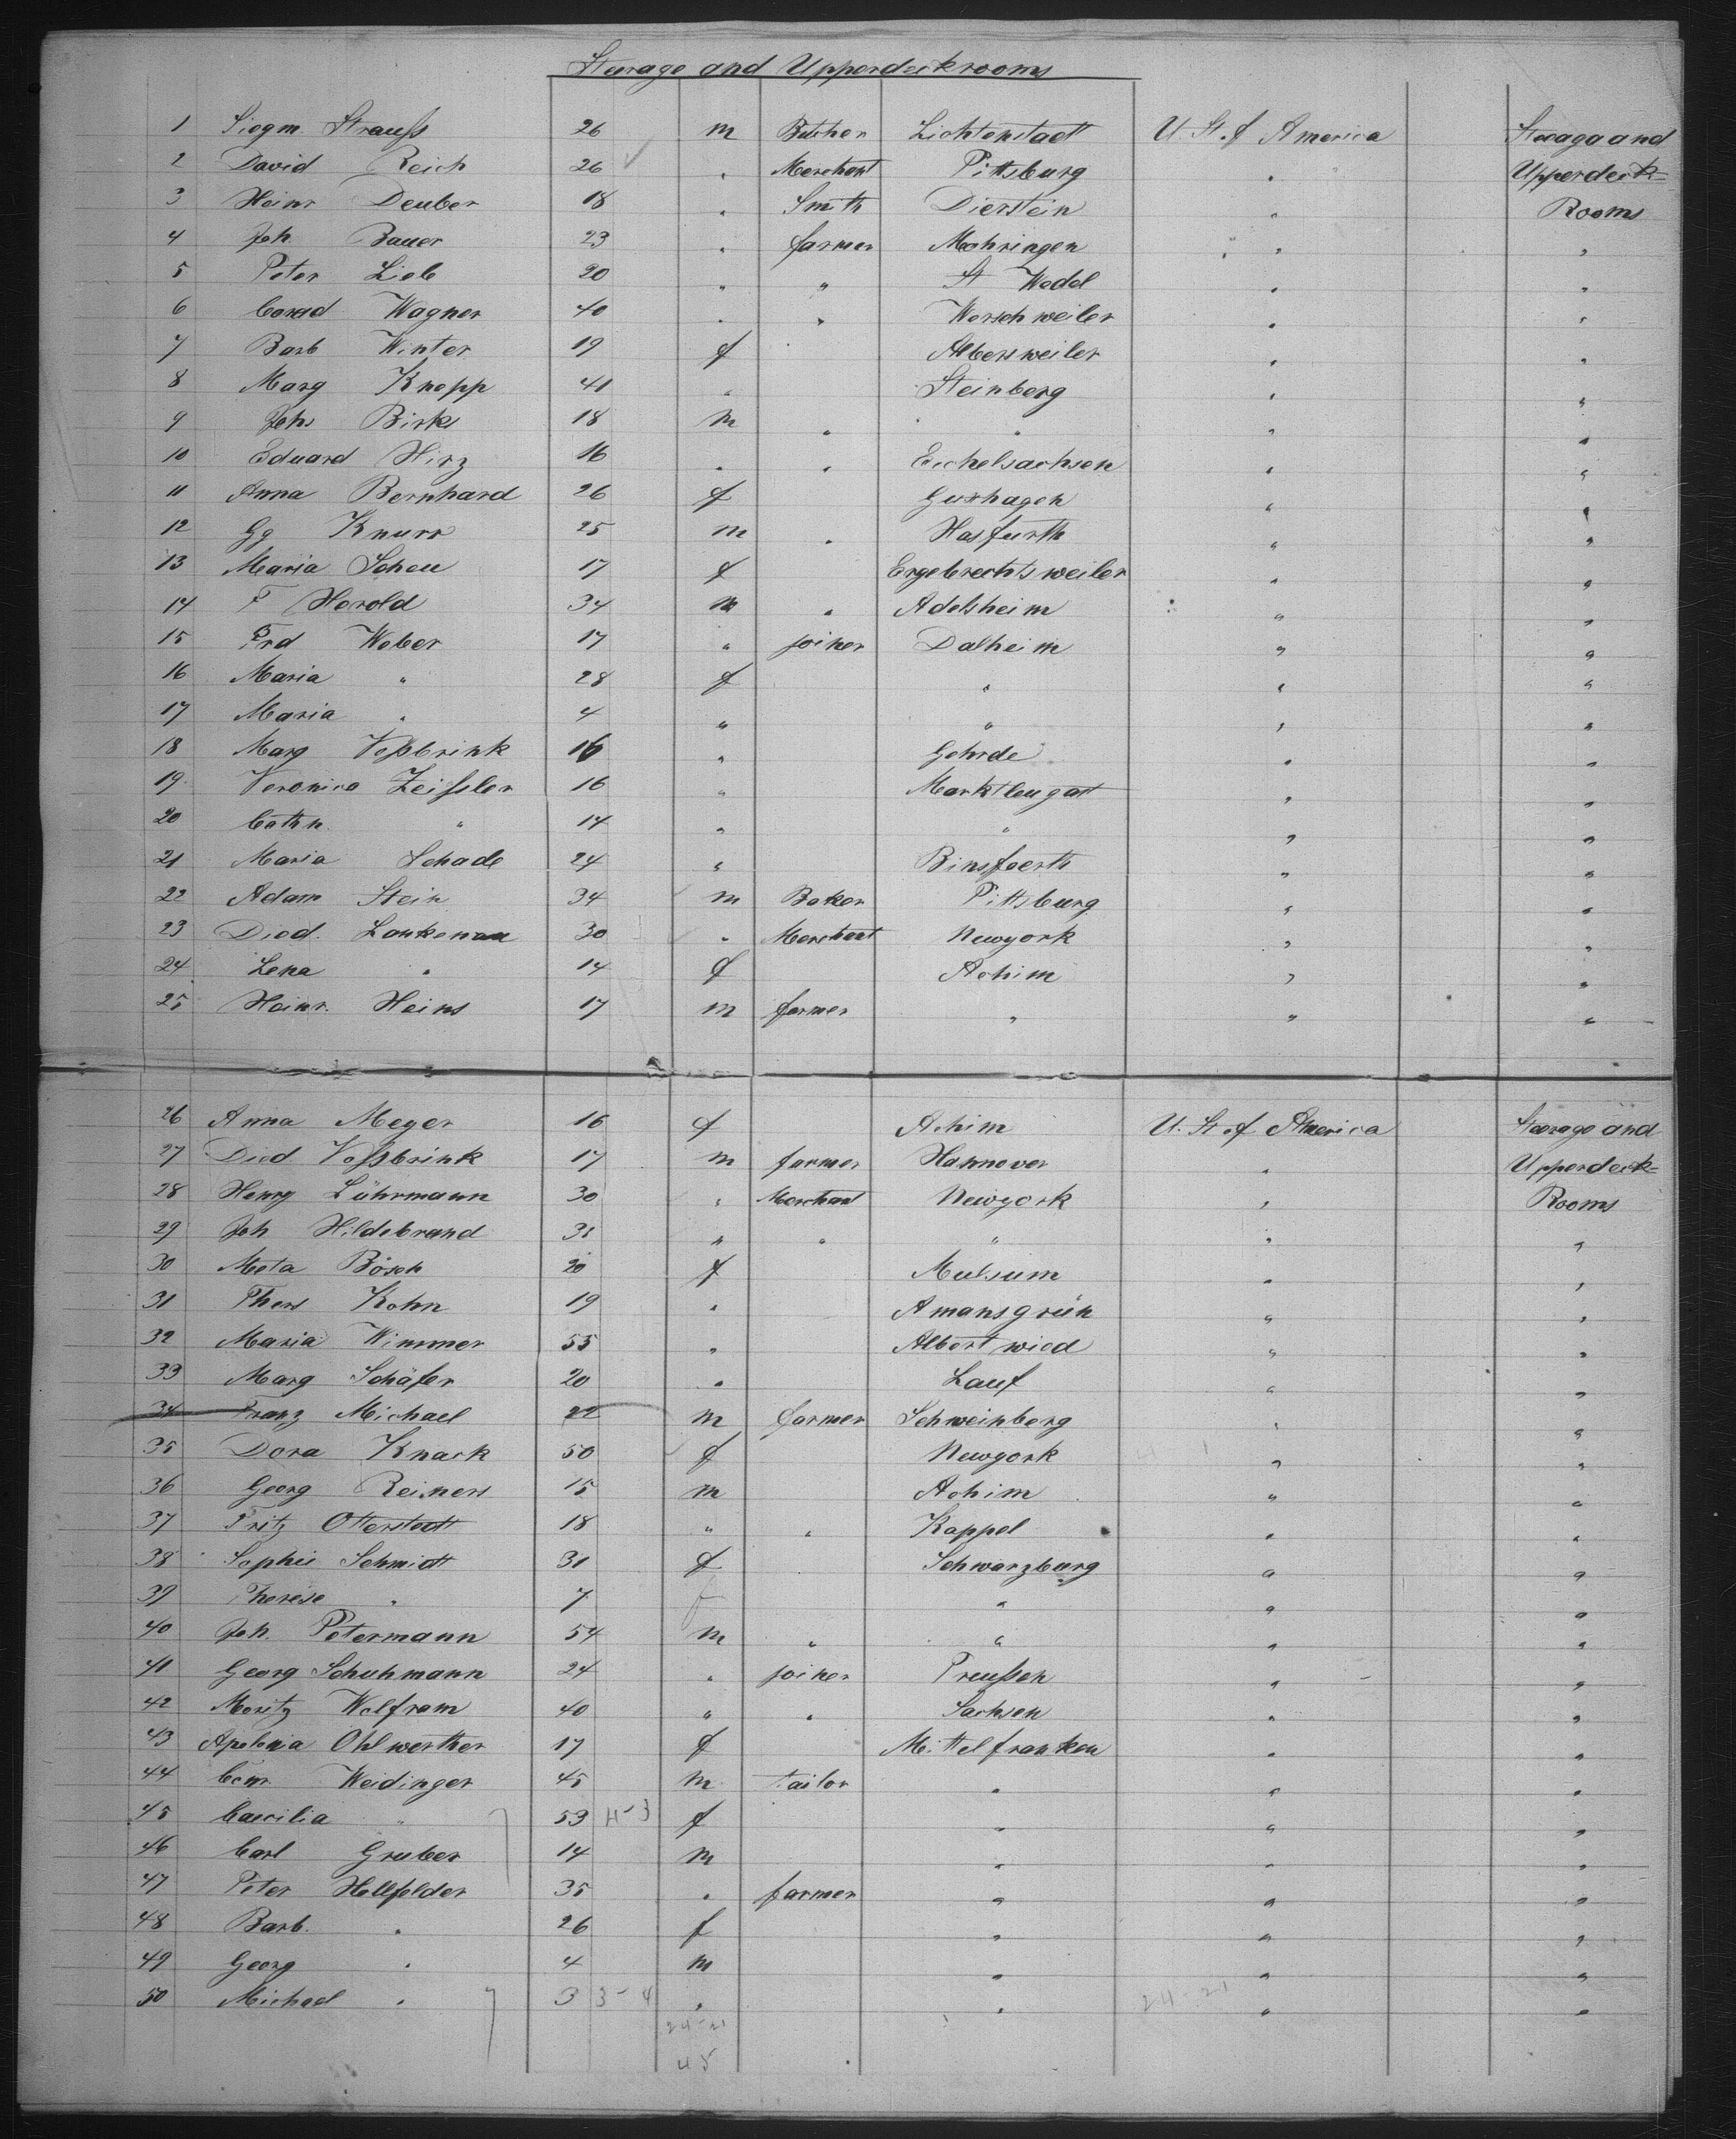 Steerage and Upperdeckrooms
1 Siegm. Strauß 26 m Butcher Lichtenstadt U. St. of America Steerage and
2 David Reich 26 " Merchant Pittsburg " Upperdeck-
3 Heinr Deuber 18 " Smith Dierstein " Rooms
4 Joh. Bauer 23 " farmer Mohringen " "
5 Peter Lieb 20 " " St Wedel " "
6 Conrad Wagner 40 " " Worschweiler " "
7 Barb Winter 19 f Albersweiler " "
8 Marg Knopp 41 " Steinberg " "
9 Johs Birk 18 m " " " "
10 Eduard Hirz 16 " " Eichelsachsen " "
11 Anna Bernhard 26 f Guxhagen " "
12 Gg Knurr 25 m " Hasfurth " "
13 Maria Scheu 17 f Ergebrechtsweiler " "
14 F Herold 34 m " Adelsheim " "
15 Frd Weber 17 " joiner Dalheim " "
16 Maria " 28 f " " "
17 Maria " 4 " " " "
18 Marg Voßbrink 16 " Gehrde " "
19 Veronica Zeissler 16 " Marktleugast " "
20 Cathn. " 14 " " " "
21 Maria Schade 24 " Binsfoerth " "
22 Adam Stein 34 m Baker Pittsburg " "
23 Died. Lankenau 30 " Merchant Newyork " "
24 Lena " 14 f Achim " "
25 Heinr. Heins 17 m farmer " " "
26 Anna Meyer 16 f Achim U. St. of America Steerage and
27 Died Voßbrink 17 m farmer Hannover " Upperdeck-
28 Henry Lührmann 30 " Merchant Newyork " Rooms
29 Joh Hildebrand 31 " " " " "
30 Meta Bösch 20 f Mulsum " "
31 Thers Kohn 19 " Amansgrün " "
32 Maria Wimmer 55 " Albertwied " "
33 Marg Schäfer 20 " Lauf " "
34 Franz Michael 22 m farmer Schweinberg " "
35 Dora Knack 50 f Newyork " "
36 Georg Reiners 15 m Achim " "
37 Fritz Otterstedt 18 " " Kappel " "
38 Sophie Schmidt 31 f Schwarzburg " "
39 Therese " 7 f " " "
40 Joh. Petermann 54 m " " " "
41 Georg Schuhmann 24 " joiner Preußen " "
42 Moritz Wolfram 40 " " Sachsen " "
43 Apolonia Ohlwerther 17 f Mittelfranken " "
44 Conr. Weidinger 45 m tailor " " "
45 Caecilia " 53 4-3 f " " "
46 Carl Gruber 14 m " " "
47 Peter Hellfelder 35 " farmer " " "
48 Barb. " 26 f " " "
49 Georg " 4 m " " "
50 Michael " 3 3-4 " " 24-21 " "
24-21
45